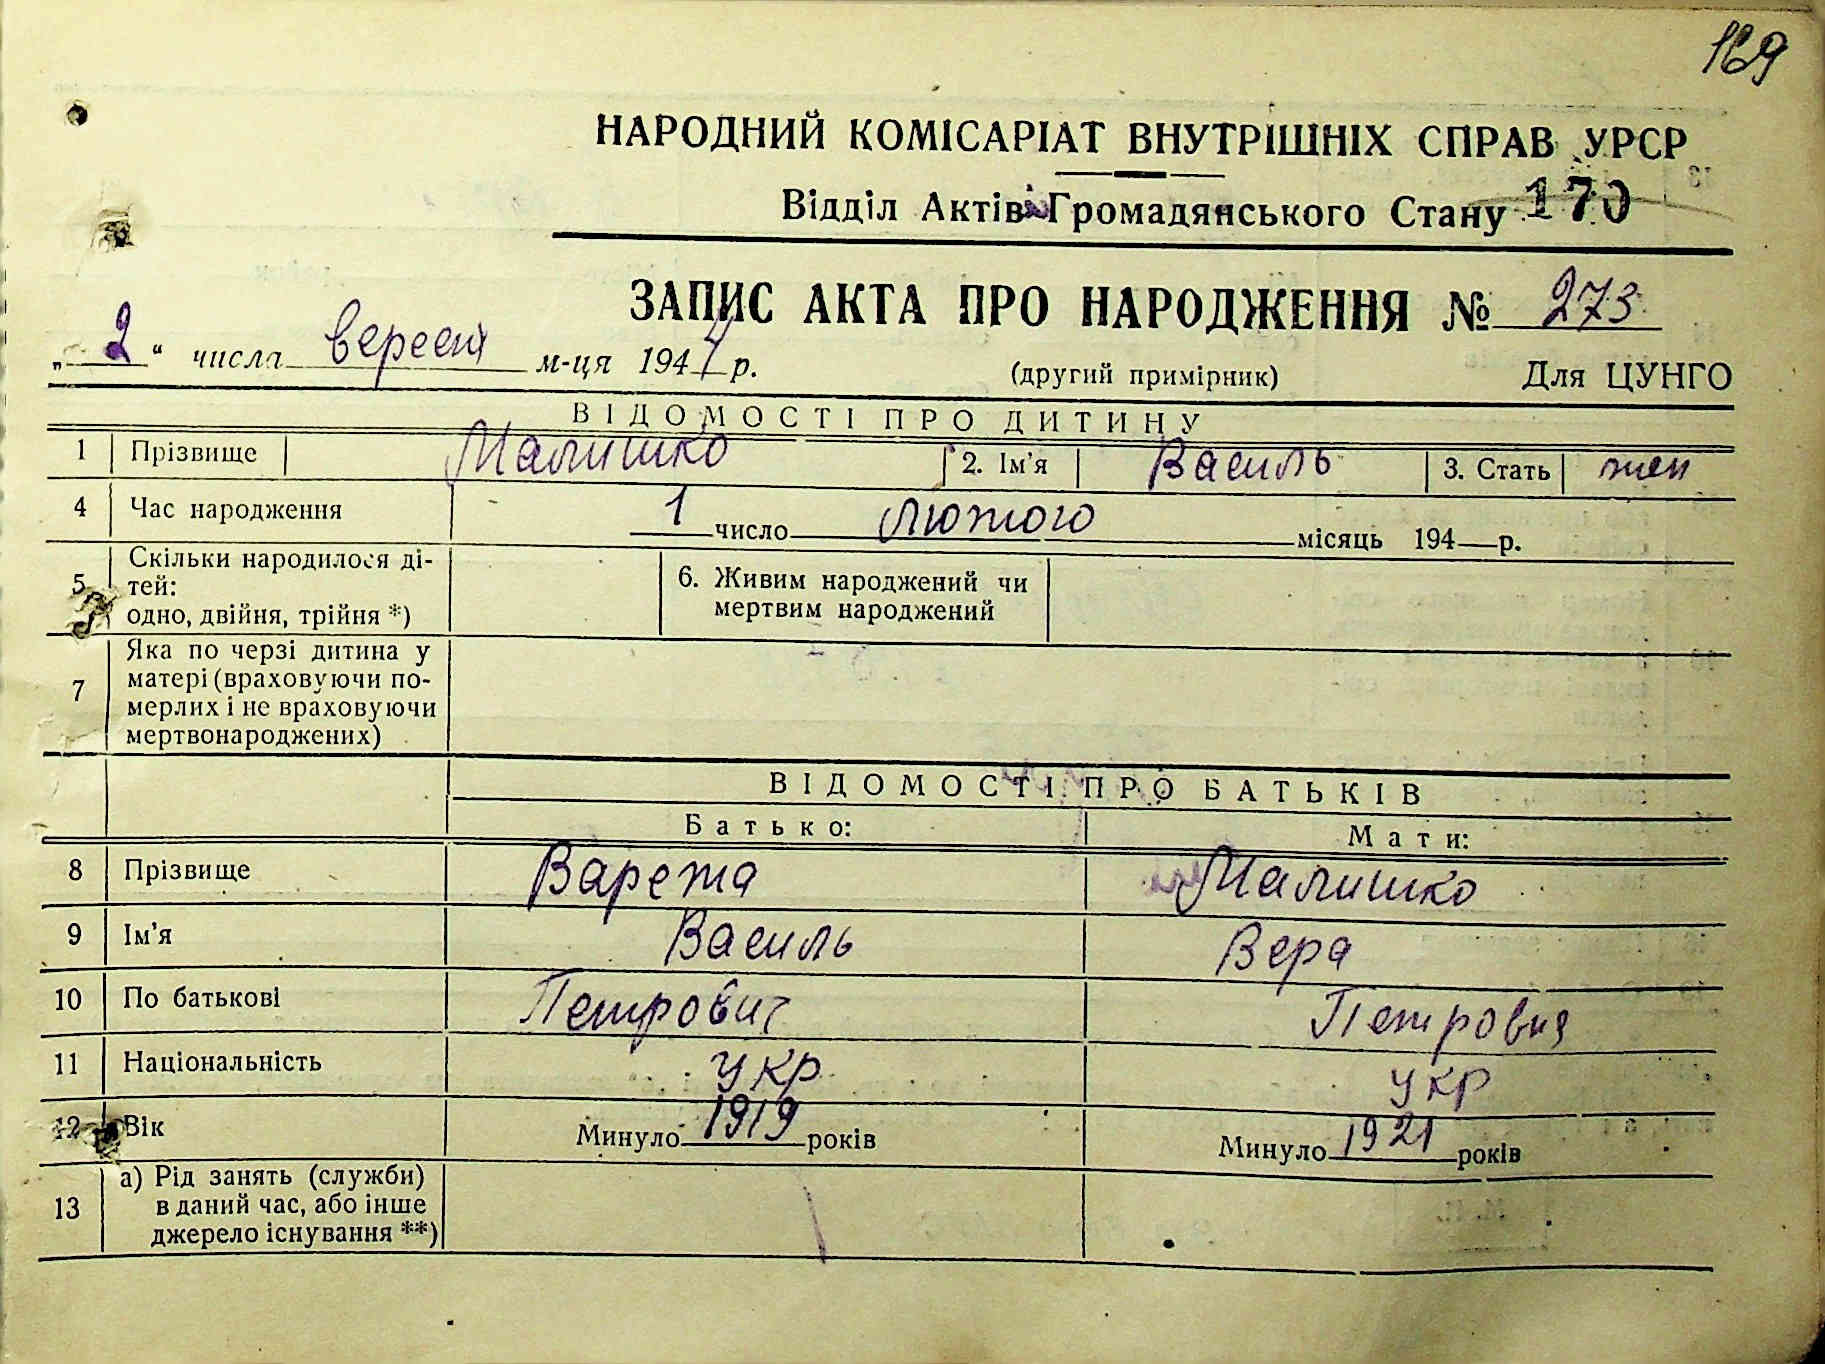 169
НАРОДНИЙ КОМІСАРІАТ ВНУТРІШНІХ СПРАВ УРСР
Відділ Актів Громадянського Стану 170
ЗАПИС АКТА ПРО НАРОДЖЕННЯ № 273
„ 2 “ числа вересня м-ця 1944 р. (другий примірник) Для ЦУНГО
ВІДОМОСТІ ПРО ДИТИНУ
1 Прізвище Малишко 2. Ім'я Василь 3. Стать
4 Час народження 1 число лютого місяць 194 р.
5 Скільки народилося ді-
тей:
одно, двійня, трійня *)
6. Живим народжений чи
мертвим народжений
7 Яка по черзі дитина у
матері (враховуючи по-
мерлих і не враховуючи
мертвонароджених)
ВІДОМОСТІ ПРО БАТЬКІВ
Батько: Мати:
8 Прізвище Варежа Малишко
9 Ім'я Василь Вера
10 По батькові Петрович Петровна
11 Національність укр укр
12 Вік Минуло 1919 років Минуло 1921 років
13 а) Рід занять (служби)
в даний час, або інше
джерело існування **)